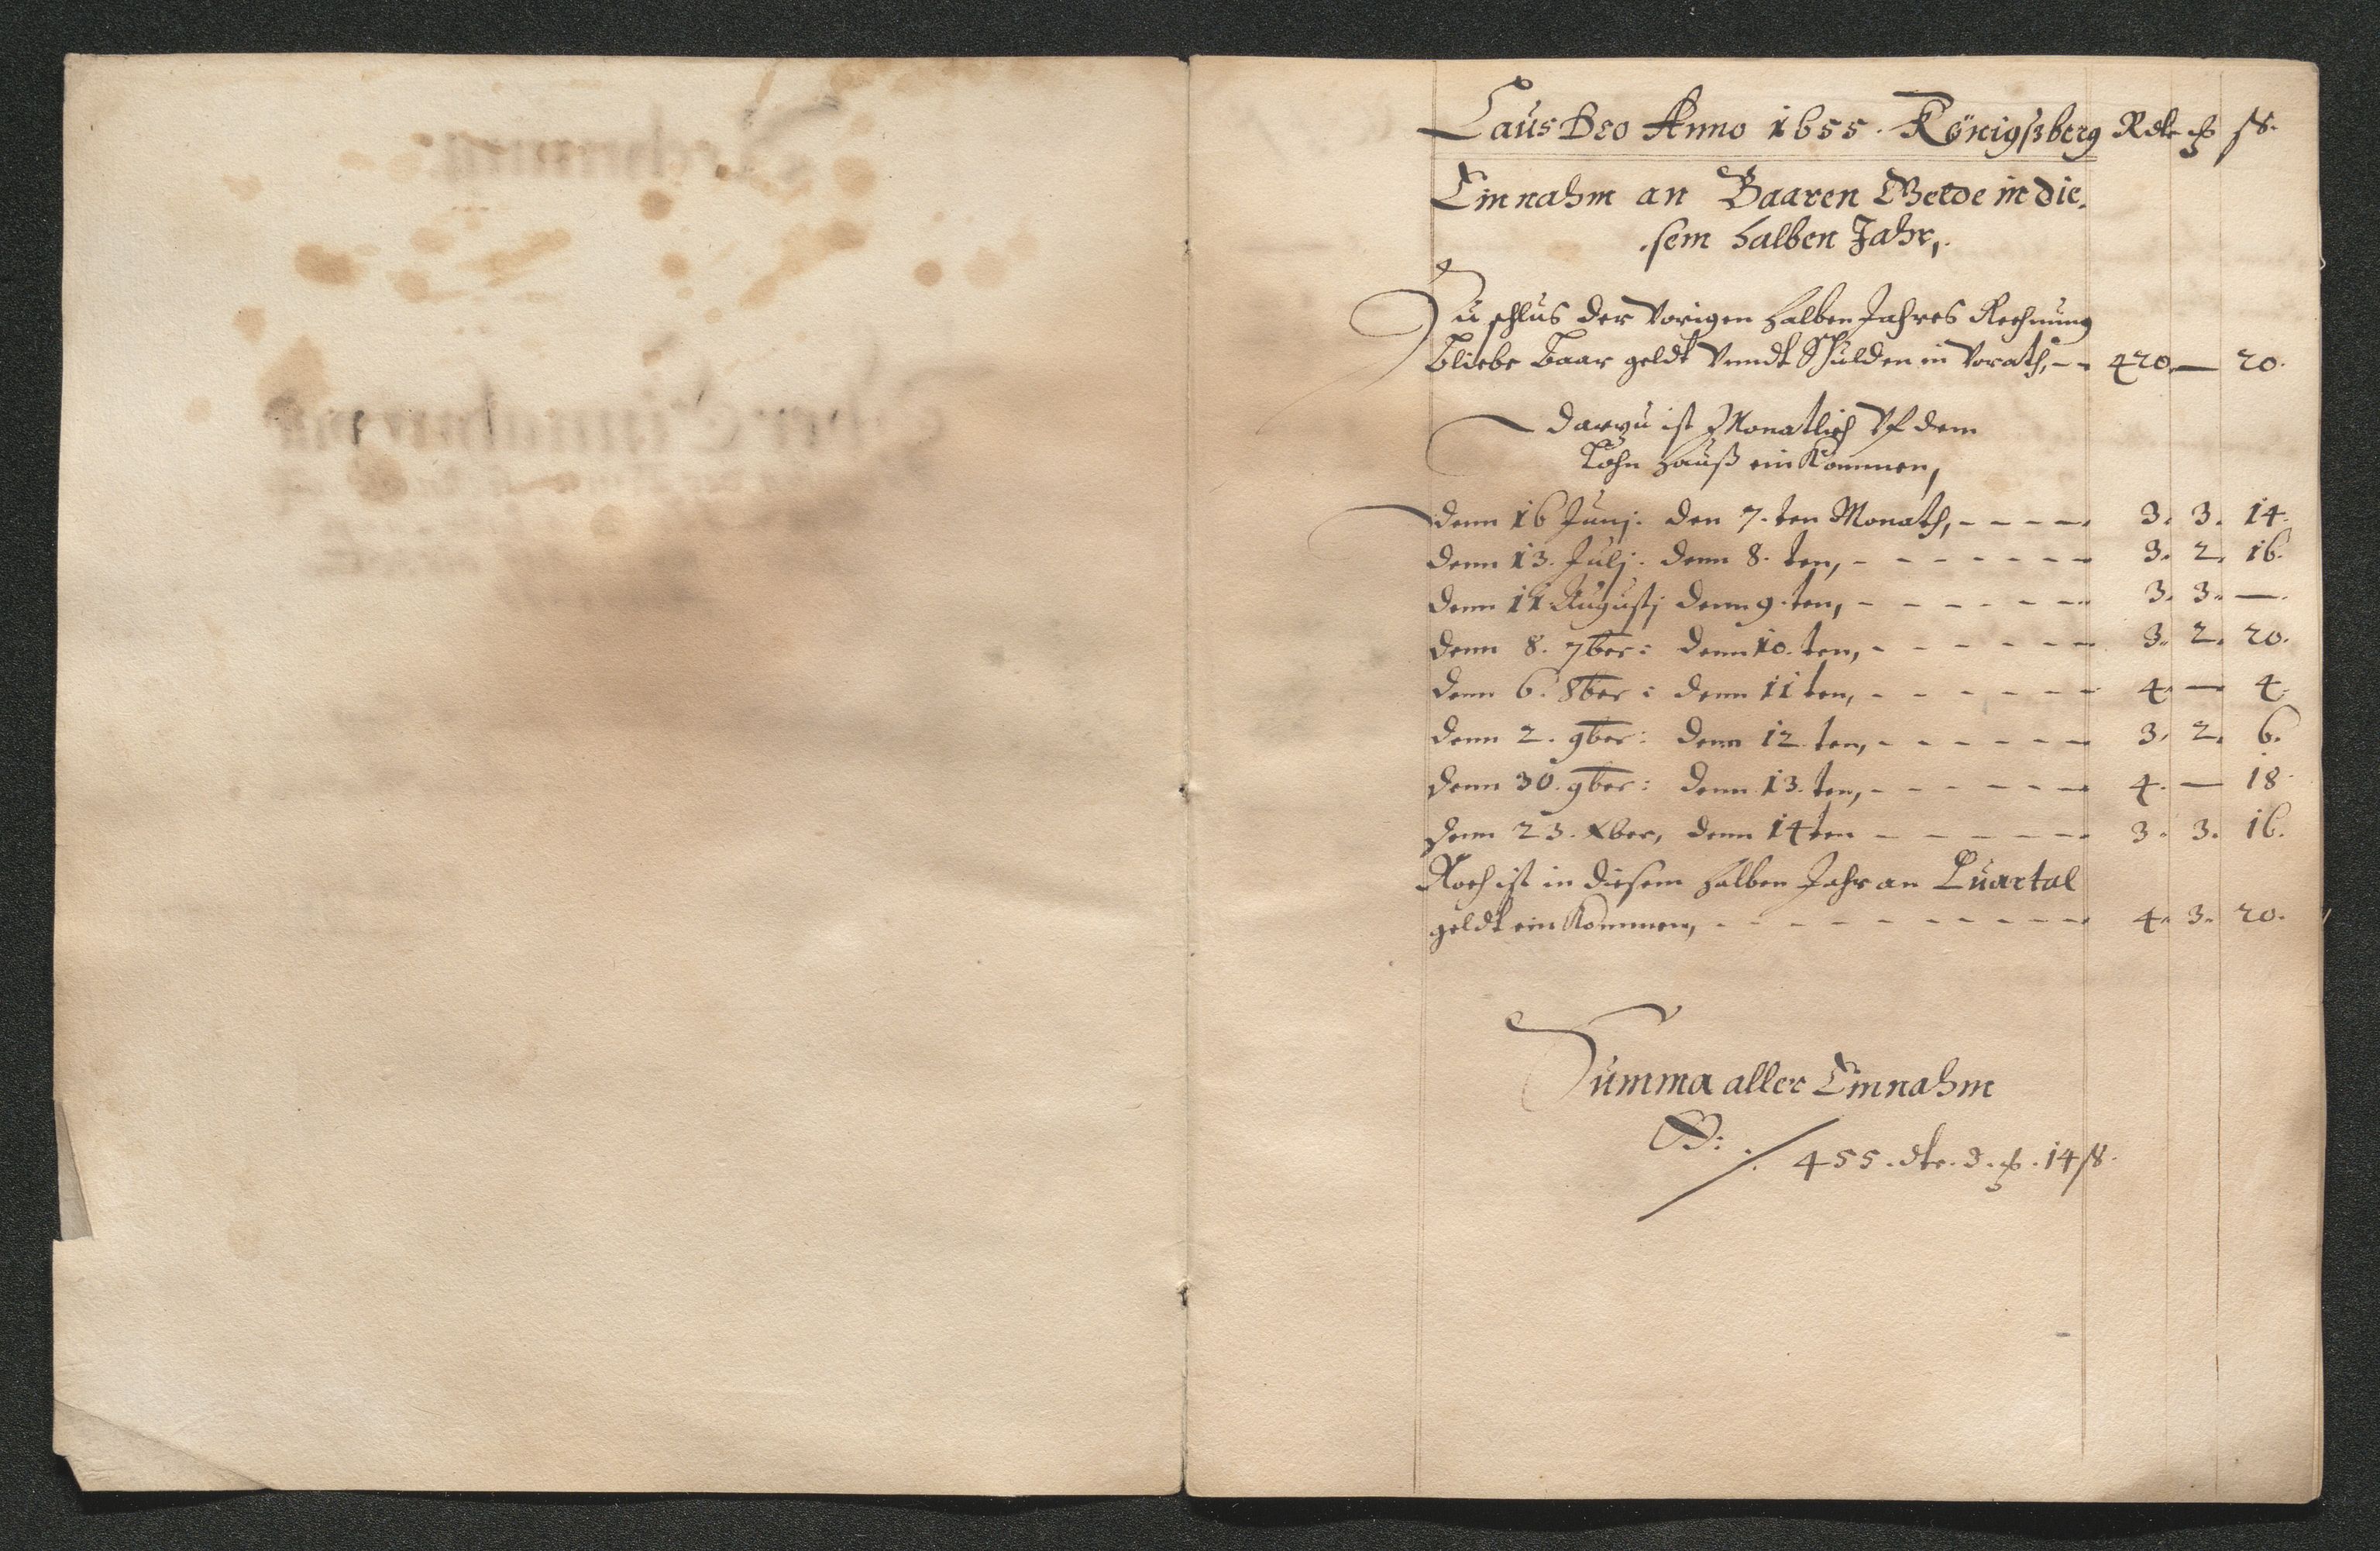 Laus Deo Anno 1655. Königßberg Rdlr ß
Einnahm an Baaren Gelde in die,
sem halben Jahr,
Zu schlus der Vorigen halben Jahres Rechnung
bliebe baar geldt Vnndt Schulden in Vorath, - - 420 — 20.
darzu ist Monatlich Vf dem
Lohn hauß ein Kommen,
denn 16 Junj. den 7. ten Monath, - - - - 3. 3. 14.
denn 13. Julj. denn 8. ten, - - - - - - 3. 2. 16.
denn 11 Augustj denn 9. ten, - - - - - - 3. 3. —.
denn 8. 7ber: denn 10. ten, - - - - - - 3. 2. 20.
denn 6. 8ber: denn 11 ten, - - - - - - 4. — 4.
denn 2. 9ber: denn 12. ten, - - - - - - 3. 2. 6.
denn 30. 9ber: denn 13. ten, - - - - - - 4. — 18
denn 23. Xber, denn 14 ten - - - - - - 3. 3. 16.
Noch ist in diesem halben Jahr an Quartal
geldt ein Kommen, - - - - - - - - - - 4. 3. 20.
Summa aller Einnahm
./. 455. dlr. 3. 14 ß.